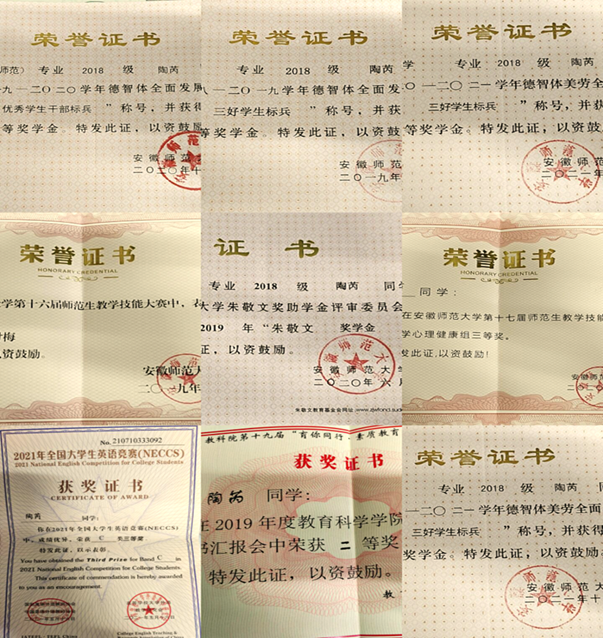 荣誉证书
师范）专业 2018 级 陶芮
九一二〇二〇学年德智体全面发展
优秀学生干部标兵 ”称号，并获得
等奖学金。特发此证，以资鼓励
安徽师范
二〇二〇年十
荣誉证书
专业 2018 级 陶芮
一二〇一九学年德智体全面发
三好学生标兵 ”称号，并获
等奖学金。特发此证，以资鼓
安徽师范
二〇一九年
荣誉证书
学 专业 2018 级 陶芮
〇一二〇二一学年德智体美劳全面
三好学生标兵 ”称号，并获
等奖学金。特发此证，以资鼓励
安徽师范大
二〇二一年
荣誉证书
HONORARY CREDENTIAL
学第十六届师范生教学技能大赛中，表
梅
资鼓励。
安徽师范大
二〇一九年
证 书
专业 2018 级 陶芮 同学
大学朱敬文奖助学金评审委员会
2019 年“朱敬文 奖学金
证，以资鼓励。
安徽师范大学
二〇二〇年六月
朱敬文教育基金会网址
荣誉证书
HONORARY CREDENTIAL
同学：
在安徽师范大学第十七届师范生教学技能
学心理健康组三等奖。
发此证，以资鼓励！
安徽师范大
二〇二
No. 210710333092
2021年全国大学生英语竞赛(NECCS)
2021 National English Competition for College Students
获奖证书
CERTIFICATE OF AWARD
陶芮 同学：
你在2021年全国大学生英语竞赛(NECCS)
中，成绩优异，荣获 C 类三等奖
特发此证，以示表彰。
You have obtained the Third Prize for Band C in
2021 National English Competition for College Students.
This certificate of commendation is hereby awarded
to you as an encouragement.
教科院第十九届“育你同行，素质教育
获奖证书
陶芮 同学：
在2019年度教育科学学院
书汇报会中荣获 二 等奖
特发此证，以资鼓励。
教
荣誉证书
专业 2018 级 陶芮
一二〇二一学年德智体美劳全面
三好学生标兵 ”称号，并获
等奖学金。特发此证，以资鼓励
安徽师范大
二〇二一年十